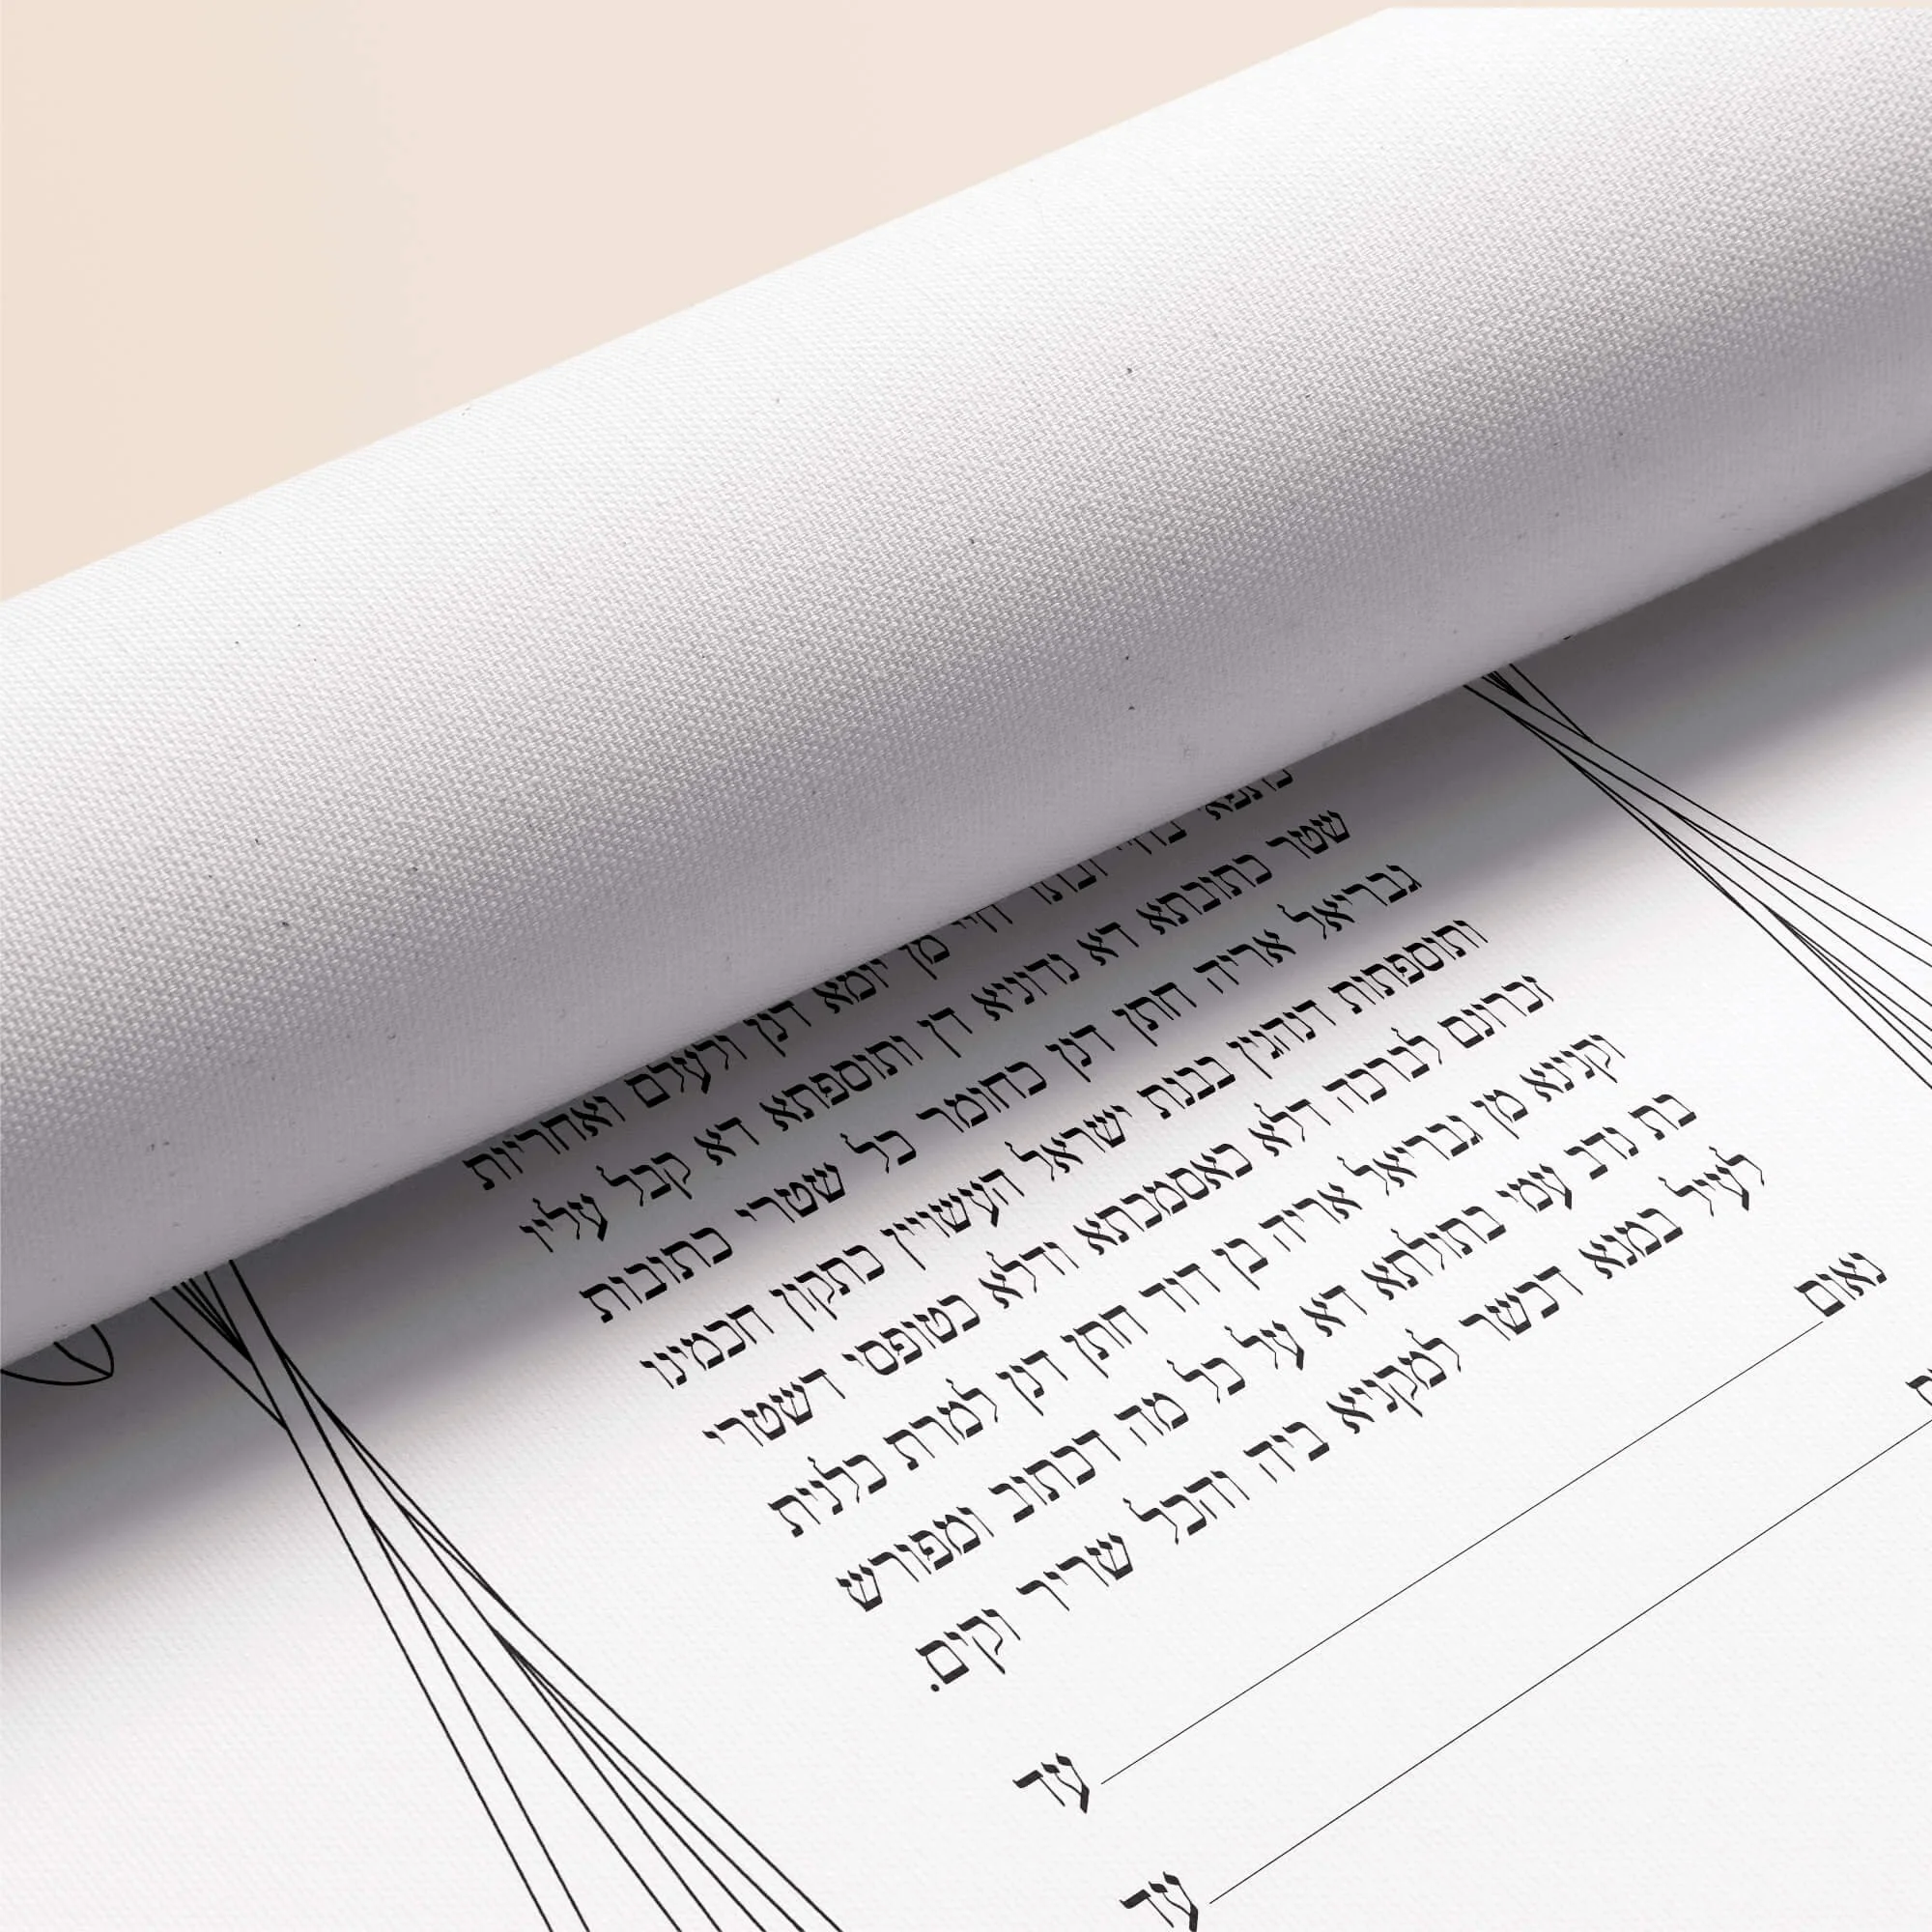 מן יומא דנן ולעלם ואחריות
שטר כתובתא דא נדוניא דן ותוספתא דא קבל עליו
גבריאל אריה חתן דנן כחומר כל שטרי כתובות
ותוספתות דנהגין בבנות ישראל העשויין כתקון חכמינו
זכרונם לברכה דלא כאסמכתא ודלא כטופסי דשטרי
קנינא מן גבריאל אריה בן דוד חתן דנן למרת כלנית
בת בתולתא דא על כל מה דכתוב ומפורש
לעיל במנא דכשר למקניא ביה והכל שריר וקים.
נאום עד
עד